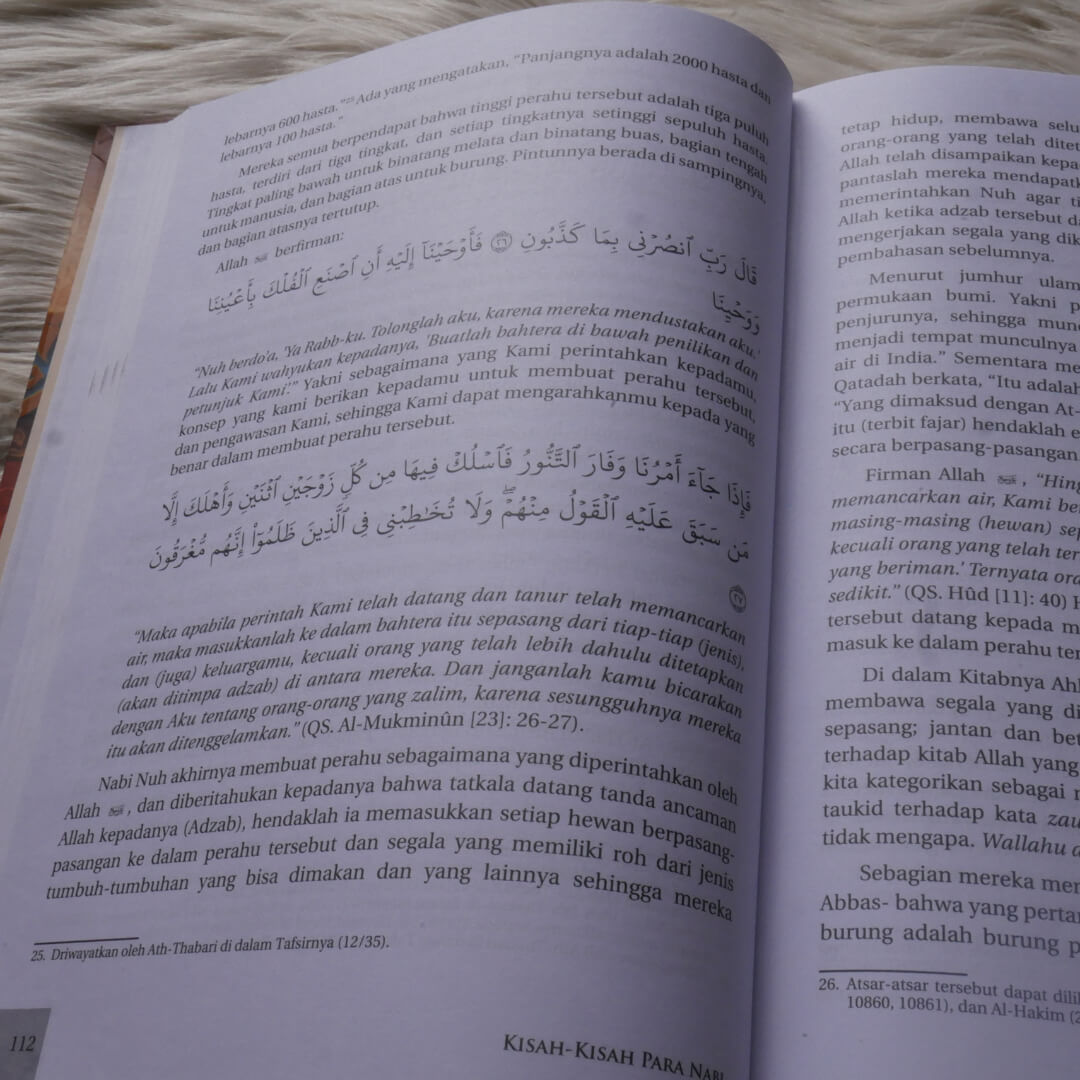 lebarnya 600 hasta."²⁵ Ada yang mengatakan, "Panjangnya adalah 2000 hasta dan
lebarnya 100 hasta."
Mereka semua berpendapat bahwa tinggi perahu tersebut adalah tiga puluh
hasta, terdiri dari tiga tingkat, dan setiap tingkatnya setinggi sepuluh hasta.
Tingkat paling bawah untuk binatang melata dan binatang buas, bagian tengah
untuk manusia, dan bagian atas untuk burung. Pintunnya berada di sampingnya,
dan bagian atasnya tertutup.
Allah ﷻ berfirman:
قَالَ رَبِّ ٱنصُرْنِى بِمَا كَذَّبُونِ ۝٢٦ فَأَوْحَيْنَآ إِلَيْهِ أَنِ ٱصْنَعِ ٱلْفُلْكَ بِأَعْيُنِنَا
وَوَحْيِنَا
"Nuh berdo'a, 'Ya Rabb-ku. Tolonglah aku, karena mereka mendustakan aku.'
Lalu Kami wahyukan kepadanya, 'Buatlah bahtera di bawah penilikan dan
petunjuk Kami.'" Yakni sebagaimana yang Kami perintahkan kepadamu,
konsep yang kami berikan kepadamu untuk membuat perahu tersebut,
dan pengawasan Kami, sehingga Kami dapat mengarahkanmu kepada yang
benar dalam membuat perahu tersebut.
فَإِذَا جَآءَ أَمْرُنَا وَفَارَ ٱلتَّنُّورُ فَٱسْلُكْ فِيهَا مِن كُلٍّ زَوْجَيْنِ ٱثْنَيْنِ وَأَهْلَكَ إِلَّا
مَن سَبَقَ عَلَيْهِ ٱلْقَوْلُ مِنْهُمْ ۖ وَلَا تُخَٰطِبْنِى فِى ٱلَّذِينَ ظَلَمُوٓا۟ إِنَّهُم مُّغْرَقُونَ
۝٢٧
"Maka apabila perintah Kami telah datang dan tanur telah memancarkan
air, maka masukkanlah ke dalam bahtera itu sepasang dari tiap-tiap (jenis),
dan (juga) keluargamu, kecuali orang yang telah lebih dahulu ditetapkan
(akan ditimpa adzab) di antara mereka. Dan janganlah kamu bicarakan
dengan Aku tentang orang-orang yang zalim, karena sesungguhnya mereka
itu akan ditenggelamkan." (QS. Al-Mukminûn [23]: 26-27).
Nabi Nuh akhirnya membuat perahu sebagaimana yang diperintahkan oleh
Allah ﷻ, dan diberitahukan kepadanya bahwa tatkala datang tanda ancaman
Allah kepadanya (Adzab), hendaklah ia memasukkan setiap hewan berpasang-
pasangan ke dalam perahu tersebut dan segala yang memiliki roh dari jenis
tumbuh-tumbuhan yang bisa dimakan dan yang lainnya sehingga mereka
25. Driwayatkan oleh Ath-Thabari di dalam Tafsirnya (12/35).
112
KISAH-KISAH PARA NABI
tetap hidup, membawa
orang-orang yang telah
Allah telah disampaikan
pantaslah mereka
memerintahkan Nuh agar
Allah ketika adzab tersebut
mengerjakan segala yang
pembahasan sebelumnya.
Menurut jumhur
permukaan bumi. Yakni
penjurunya, sehingga
menjadi tempat munculnya
air di India." Sementara
Qatadah berkata, "Itu adalah
"Yang dimaksud dengan At-
itu (terbit fajar) hendaklah
secara berpasang-pasangan
Firman Allah ﷻ, "
memancarkan air, Kami
masing-masing (hewan)
kecuali orang yang telah
yang beriman.' Ternyata
sedikit." (QS. Hûd [11]: 40)
tersebut datang kepada
masuk ke dalam perahu
Di dalam Kitabnya
membawa segala yang
sepasang; jantan dan
terhadap kitab Allah yang
kita kategorikan sebagai
taukid terhadap kata
tidak mengapa. Wallahu
Sebagian mereka
Abbas- bahwa yang
burung adalah burung
26. Atsar-atsar tersebut dapat
10860, 10861), dan Al-Hakim (2